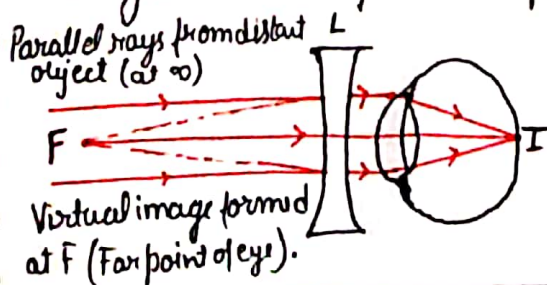 Parallel rays from distant
object (at ∞)
L
F
I
Virtual image formed
at F (Far point of eye).